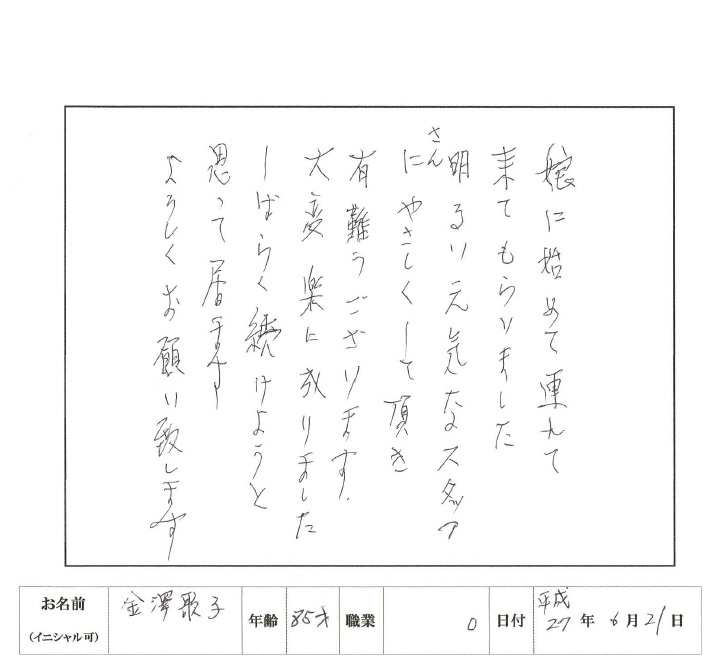 娘に始めて連れて
来てもらいました
明るい元気なスタッフ
さんにやさしくして頂き
有難うございます．
大変楽に成りました
しばらく続けようと
思って居ます
よろしくお願い致します
お名前
(イニシャル可)
金澤 子
年齢 85才 職業 0 日付 平成27年 6月21日